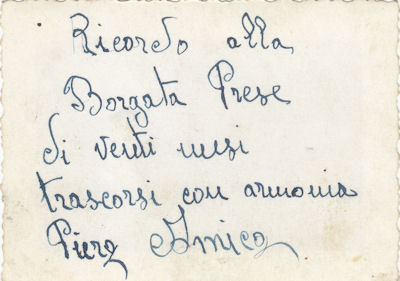 Ricordo alla
Borgata Prese
di venti mesi
trascorsi con armonia
Piera Amico